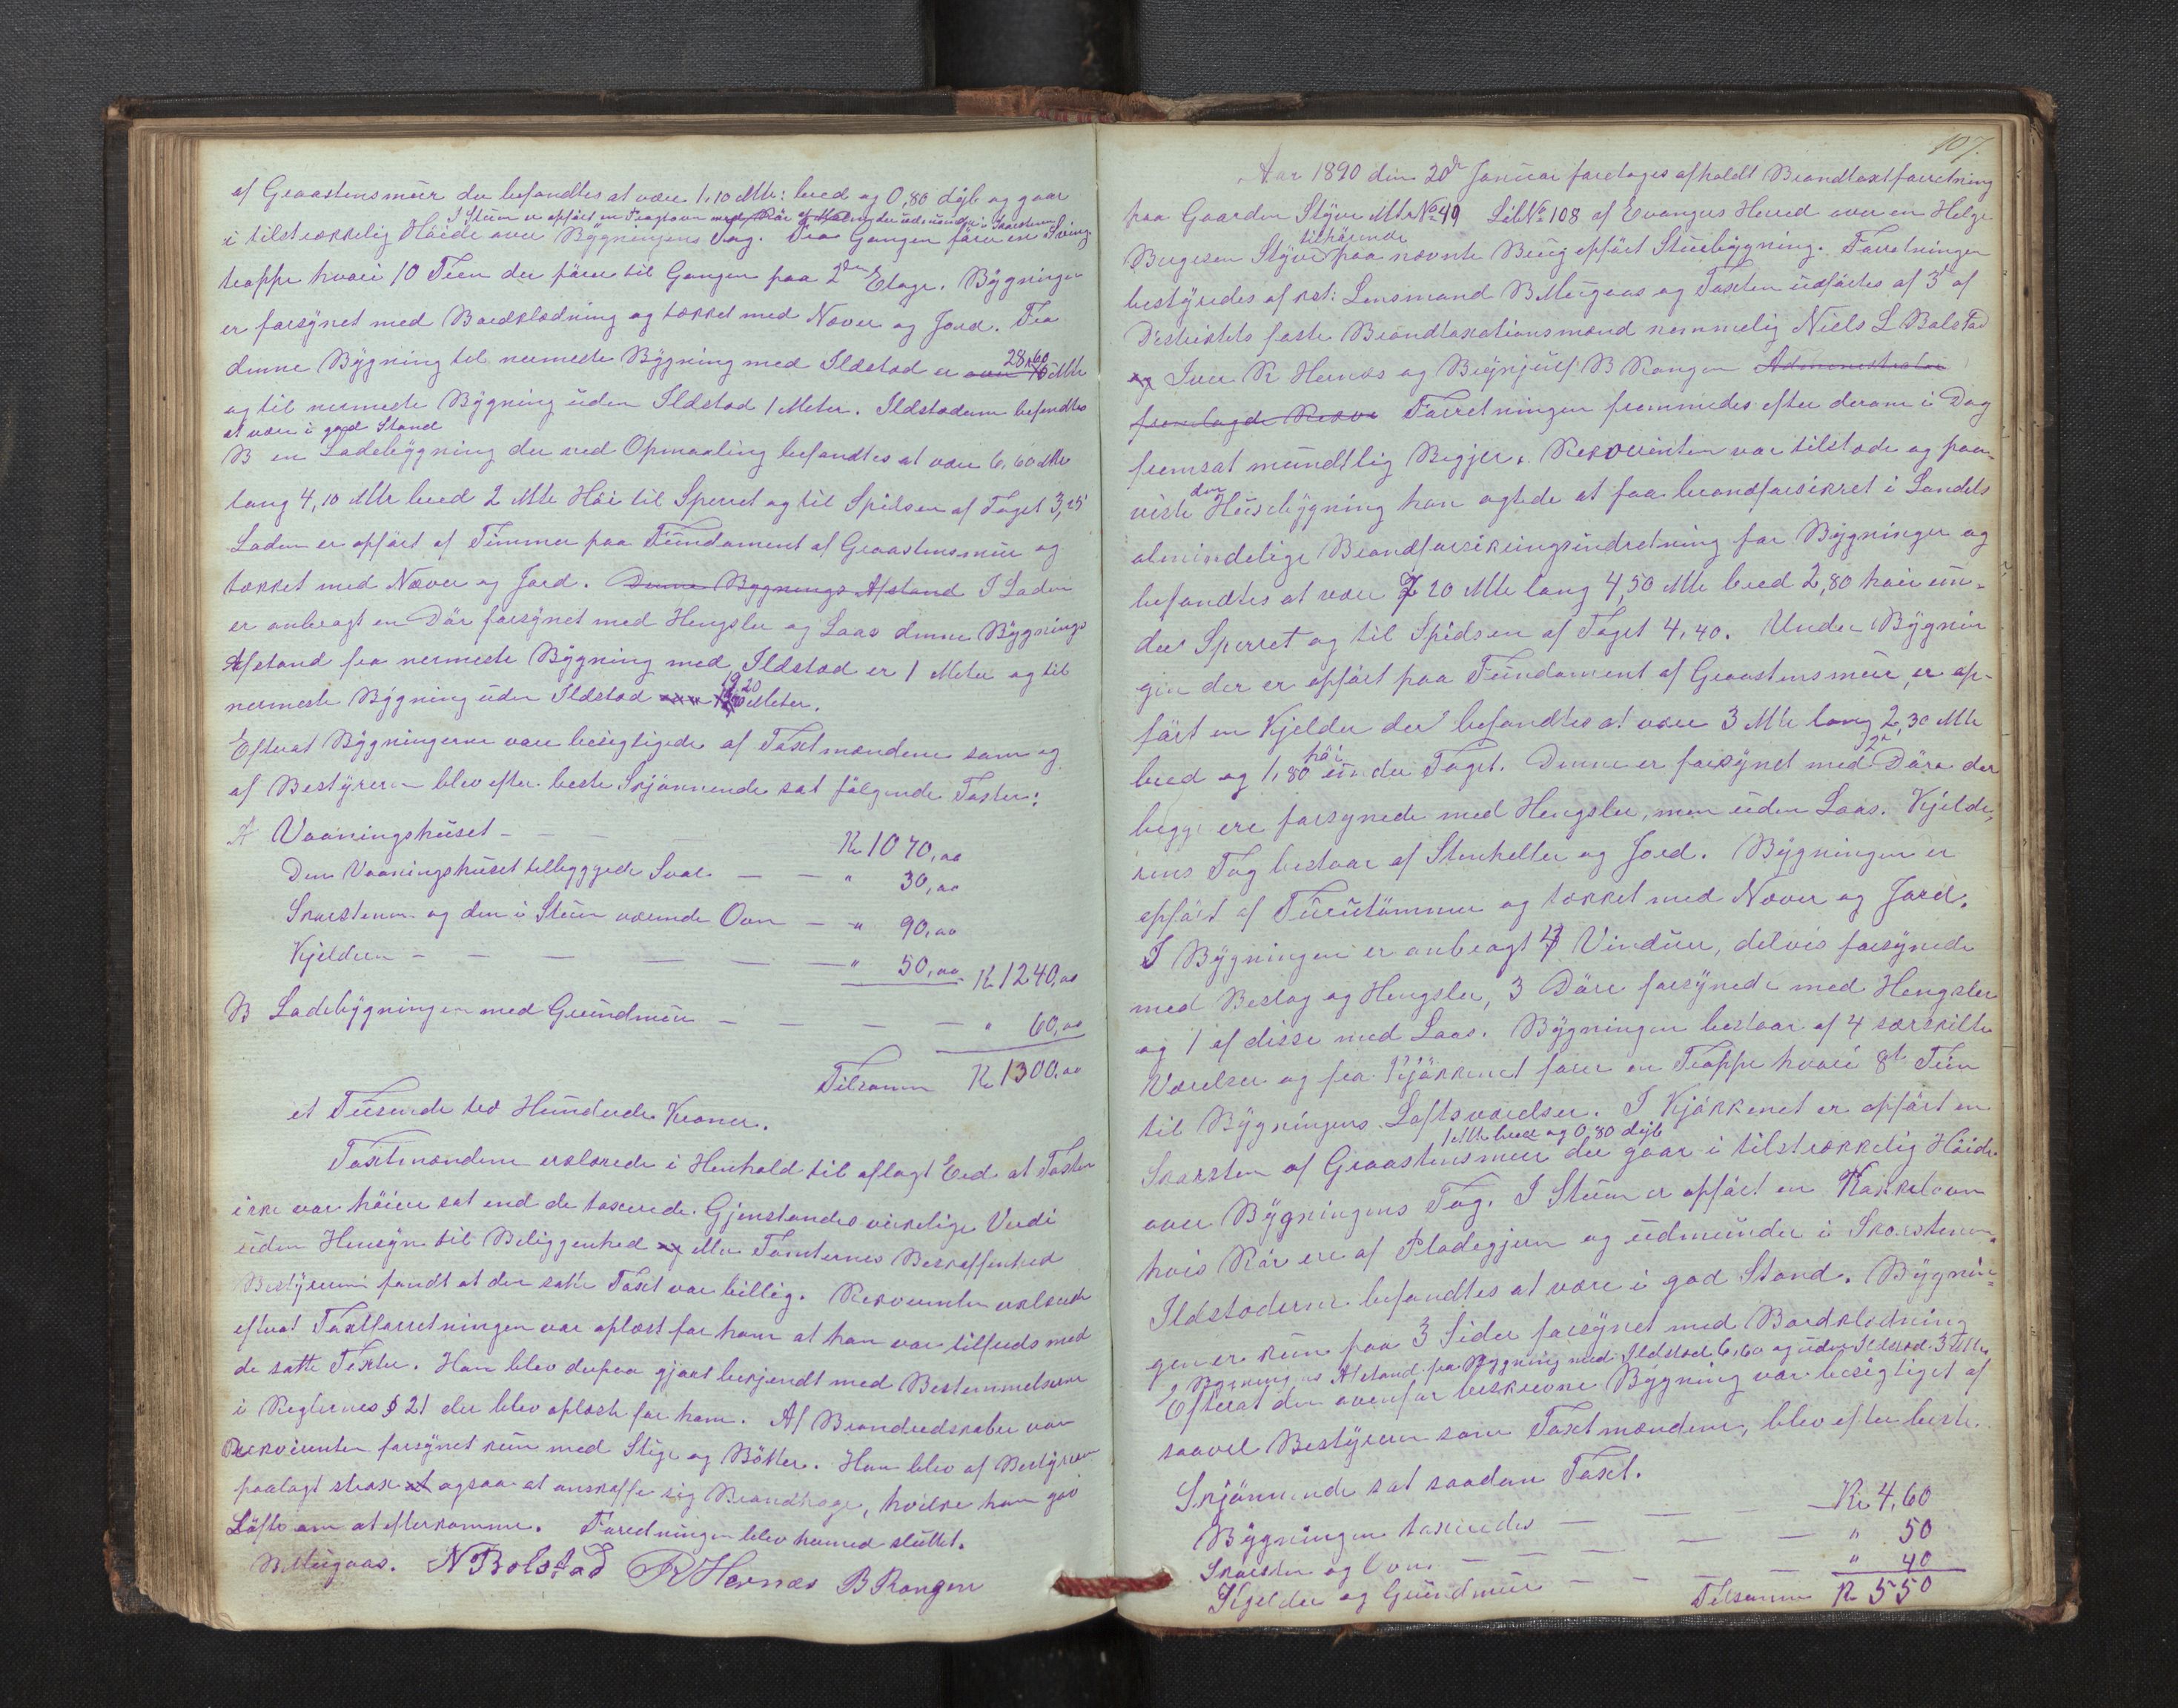 af Graastensmur der befandtes at være 1,10 Mtr: bred og 0,80 dyb og gaar
I Stuen er opført en Kragtovn med Rør af Malm der udmunder i Skorstenen
i tilstrækkelig Høide over Bygningens Tag. Fra Gangen fører en Sving-
trappe hvori 10 Trin der fører til Gangen paa 2den Etage. Bygningen
er forsynet med Bordklædning og tækket med Næver og Jord. Fra
denne Bygning til nermeste Bygning med Ildsted er 28,60 Mtr
og til nermeste Bygning uden Ildsted 1 Meter. Ildstederne befandtes
at være i god Stand
B en Ladebygning der ved Opmaaling befandtes at være 6,60 Mtr
lang 4,10 Mtr bred 2 Mtr Høi til Sperret og til Spidsen af Taget 3,25
Laden er opført af Tømmer paa Fundament af Graastensmur og
tækket med Næver og Jord. Denne Bygnings Afstand I Laden
er anbragt en Dør forsynet med Hengsler og Laas denne Bygnings
Afstand fra nermeste Bygning med Ildsted er 1 Meter og til
nermeste Bygning uden Ildsted 19,20 Meter.
Efterat Bygningerne vare besigtigede af Taxtmændene som og
af Bestyreren blev efter beste Skjønnende sat følgende Taxter:
A Vaaningshuset - - - Kr 1070,00
Den Vaaningshuset tilbyggede Sval - - " 30,00
Skorstenen og den i Stuen værende Ovn - " 90,00
Kjelderen - - - - - " 50,00 Kr 1240,00
B Ladebygningen med Grundmur - - - - " 60,00
Tilsammen Kr 1300,00
et Tusende tre Hundrede Kroner.
Taxtmændene erklærede i Henhold til aflagt Eed at Taxten
ikke var høiere sat end de taxerede Gjenstandes virkelige Verdi
uden Hensyn til Beliggenhed og eller Tomternes Beskaffenhed
Bestyreren fandt at den satte Taxt var billig. Rekvirenten erklærede
efterat Taxtforretningen var oplæst for ham at han var tilfreds med
de satte Taxter. Han blev derpaa gjort bekjendt med Bestemmelserne
i Reglernes § 21 der blev oplæste for ham. Af Brandredskaber var
Rekvirenten forsynet kun med Stige og Bøtter. Han blev af Bestyreren
paalagt strax at ogsaa at anskaffe sig Brandhage, hvilke han gav
Løfte om at efterkomme. Forretningen blev hermed sluttet.
B Mugaas. N Bolstad R Hernæs B Rongen
107.
Aar 1890 den 20de Januar foretoges afholdt Brandtaxtforretning
paa Gaarden Styve Mtr No 49 Lib No 108 af Evanger Herred over en Helge
tilhørende
Birgesen Styve paa nævnte Brug opført Stuebygning. Forretningen
bestyredes af kst: Lensmand B Mugaas og Taxten udførtes af 3 af
Distriktets faste Brandtaxationsmænd nemmelig Niels L Bolstad
og Iver R Hernæs og Brynjulf B Rongen Administrator
fremlagde Rekvi Forretningen fremmedes efter derom i Dag
fremsat mundtlig Begjer. Rekvirenten var tilstede og paa-
den
viste Husebygning han agtede at faa brandforsikret i Landets
almindelige Brandforsikringsindretning for Bygninger og
befandtes at være 7 20 Mtr lang 4,50 Mtr bred 2,80 høi un-
der Sperret og til Spidsen af Taget 4,40. Under Bygnin
gen der er opført paa Fundament af Graastensmur, er op-
ført en Kjelder der befandtes at være 3 Mtr lang 2,30 Mtr
høi 2de
bred og 1,80 under Taget. Denne er forsynet med Døre der
begge ere forsynede med Hengsler, men uden Laas. Kjelde-
rens Tag bestaar af Stenheller og Jord. Bygningen er
opført af Furutømmer og tækket med Næver og Jord.
I Bygningen er anbragt 4 Vinduer, delvis forsynede
med Beslag og Hengsler, 3 Døre forsynede med Hengsler
og 1 af disse med Laas. Bygningen bestaar af 4 særskilte
Værelser og fra Kjøkkenet fører en Trappe hvori 8 Trin
til Bygningens Loftsværelser. I Kjøkkenet er opført en
1 Mtr bred og 0,80 dyb
Skorsten af Graastensmur der gaar i tilstrækkelig Høide
over Bygningens Tag. I Stuen er opført en Kakkelovn
hvis Rør ere af Pladegjern og udmunder i Skorstenen.
Ildstederne befandtes at være i god Stand. Bygnin-
gen er kun paa 3 Sider forsynet med Bordklædning
Bygningens Afstand fra Bygning med Ildsted 6,60 og uden Ildsted 3 Mtr
Efterat den ovenfor beskrevne Bygning var besigtiget af
saavel Bestyreren som Taxtmændene, blev efter beste
Skjønnende sat saadan Taxt.
Bygningen taxeredes - - - Kr 4,60
Skorsten og Ovn - - - - " 50
Kjelder og Grundmur - - - - " 40
Tilsammen Kr 550